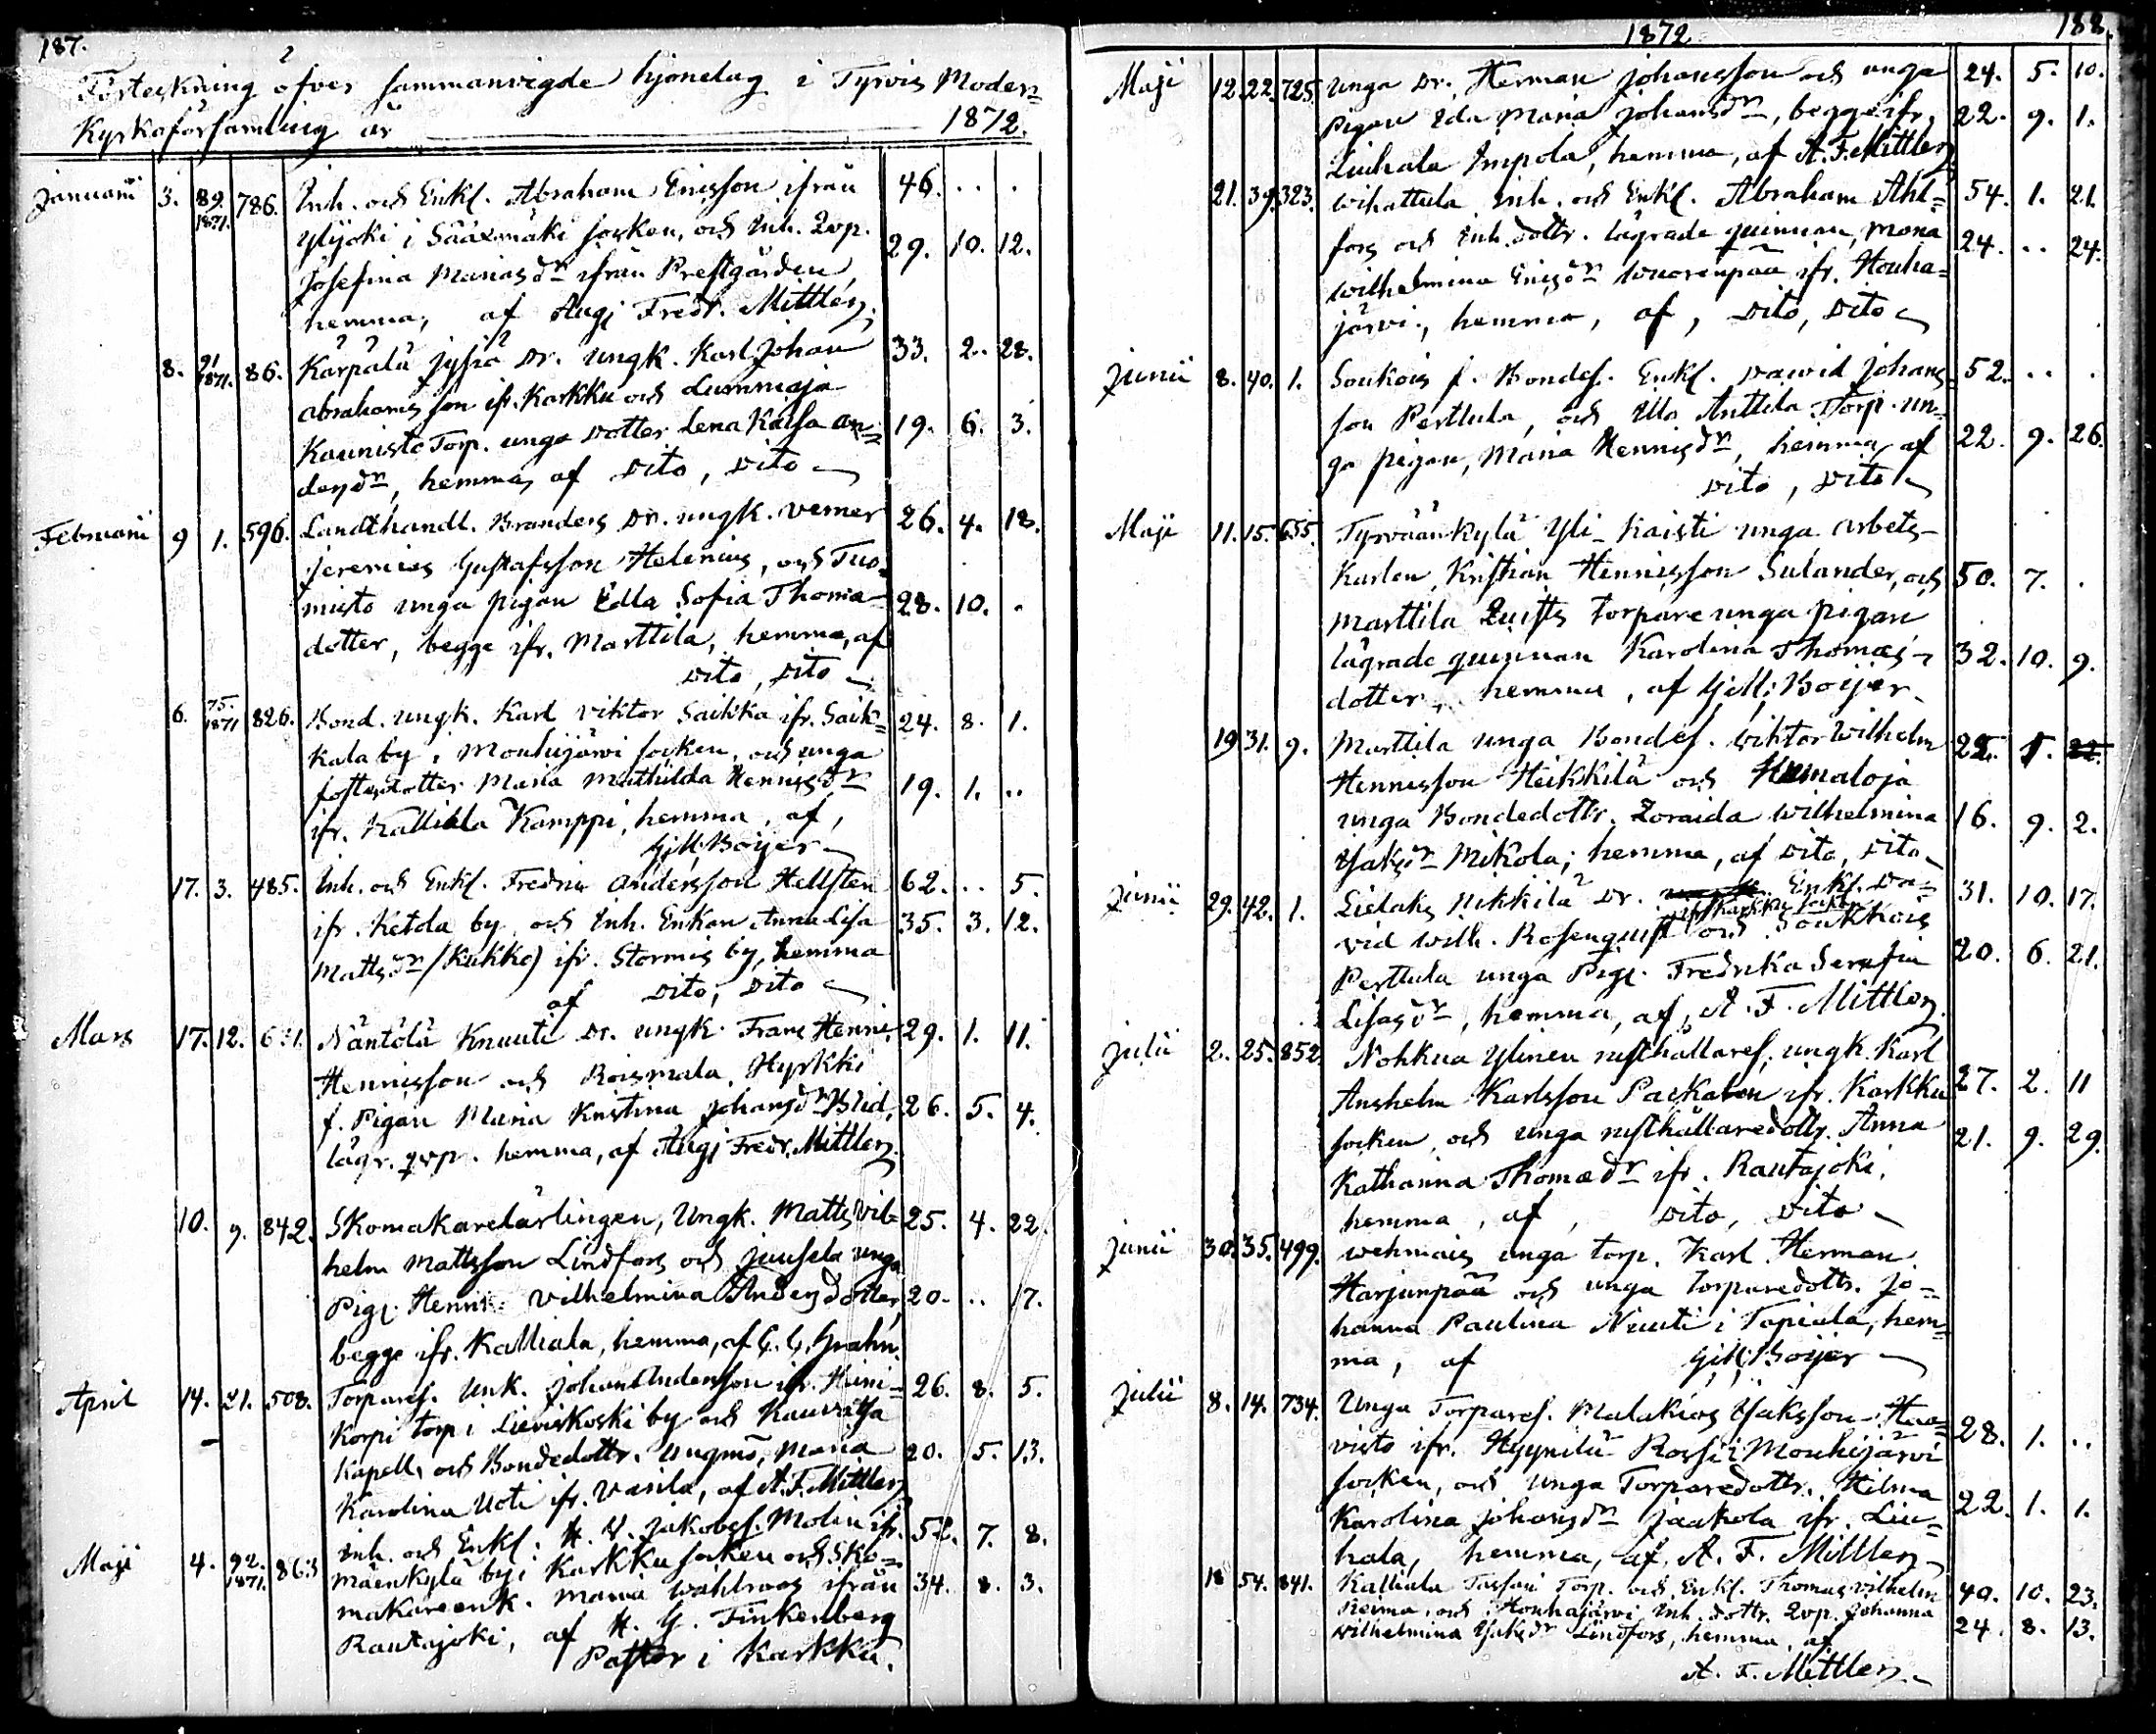 187.
Förteckning öfver sammanvigde hjonelag i Tyrvis Moder=
Kyrkoförsamling år 1872.
Januarii 3. 89. 1871. 786. Inh. och Enkl. Abraham Ericsson ifrån 46. .. .
Ylijoki i Sääxmäki socken, och Inh. Qvp.
Josefina Mariasdr ifrån Prestgården, 29. 10. 12.
hemma, af Aug: Fredr. Mittler,
8. 91 1871. 86. Kärpälä Jyfiä Dr. ungk. Karl Johan 33. 2. 28.
Abrahamsson ifr. Karkku och Lummaja
Kaunisto Torp. unga dotter Lena Kajsa An= 19. 6. 3.
dersdr, hemma, af Dito, Dito
Februarii 9 1. 596. Landthandl. Branders Dr. ungk. Verner 26. 4. 18.
Jeremias Gustafsson Helenius, och Tuo=
misto unga pigan Edla Sofia Thoma= 28. 10. .
dotter, begge ifr. Marttila, hemma, af
Dito, Dito
6. 75. 1871 826. Bond. ungk. Karl Viktor Saikka ifr. Saik= 24. 8. 1.
kala by i Mouhijärvi socken, och unga
fosterdotter Maria Mathilda Henricsdr 19. 1. ..
ifr. Kalliala Kamppi, hemma, af,
G: M: Boijer
17. 3. 485. Inh. och Enkl. Fredric Andersson Hellsten 62. .. 5.
ifr. Ketola by, och Inh. Enkan Anna Lisa 35. 3. 12.
Mattsdr (Kukko) ifr. Stormis by, hemma
af Dito, Dito
Mars 17. 12. 631. Näntölä Knuuti Dr. ungk. Frans Henric 29. 1. 11.
Henricsson och Roismala, Hyrkki
f. Pigan Maria Kristina Johansdr Blid, 26. 5. 4.
lägr. qvp. hemma, af Aug: Fredr. Mittler
10. 9. 842. Skomakarelärlingen, Ungk. Matts Vil= 25. 4. 22.
helm Mattsson Lindfors och Juusela unga
Pig: Henr: Vilhelmina Andersdotter, 20. .. 17.
begge ifr. Kalliala, hemma, af G. G. Grahn.
April 14. 21. 508. Torpares. Unk. Johan Andersson ifr. Huni= 26. 8. 5.
Korpi torp i Lieviskoski by och Kauvatsa
Kapell, och Bondedottr. Ungmö, Maria 20. 5. 13.
Karolina Uoti ifr. Vänilä, af A. F. Mittler
Maji 4. 92. 1871. 863 Inh. och Enkl: K. V. Jakobss. Molin ifr. 52. 7. 8.
Mäenkylä by i Karkku socken och Sko=
makareenk. Maria Wahlroos ifrån 34. 8. 3.
Rautajoki, af K. G. Finkenberg
Pastor i Karkku.
1872 188.
Maji 12. 22. 725. Unga Dr. Herman Johansson och unga 24. 5. 10.
Pigan Eda Maria Johansdr, begge ifr. 22. 9. 1.
Liuhala Impola, hemma, af A. F. Mittler
21. 39. 323. Wihattula Inh. och Enkl. Abraham Ahl= 54. 1. 21.
fors och Inh. dottr. lägrade quinnan, Maria 24. .. 24.
Wilhelmina Ericsdr Wuorenpää ifr. Houha=
järvi, hemma, af, Dito, Dito
Junii 8. 40. 1. Soukois f. Bondes. Enkl. David Johans= 52. .. .
son Perttula, och Ulla Anttila Torp. un=
ga pigan, Maria Henricsdr, hemma, af 22. 9. 26.
Dito, Dito
Maji 11. 15. 655. Tyrväänkylä Yli-Kaisti unga arbets=
Karlen, Kristian Henricsson Sulander, och 50. 7. .
Marttila Qvists Torpare unga pigan
lägrade quinnan Karolina Thomas= 32. 10. 9.
dotter, hemma, af G: M: Boijer
19 31. 9. Marttila unga Bondes. Wiktor Wilhelm 22. 5. 22.
Henricsson Heikkilä och Humaloja
unga Bondedottr. Zoraida Wilhelmina 16. 9. 2.
Isaksdr Mikola, hemma, af Dito, Dito
Junii 29. 42. 1. Lielaks Nikkilä Dr. Enkl. Da= 31. 10. 17.
ifr Karkku socken
vid Wilh. Rosenquist och Soukkois
Perttula unga Pig: Fredrika Serafia 20. 6. 21.
Lisasdr, hemma, af, A. F. Mittler
Julii 2. 25. 852. Nohkua Ylinen rusthållares. ungk. Karl
Anshelm Karlsson Paikalen ifr. Karkku 27. 2. 11
socken, och unga rusthållaredottr. Anna 21. 9. 29.
Katharina Thomædr ifr. Rautajoki,
hemma, af, Dito, Dito
Junii 30. 35. 499. Wehmais unga torp. Karl Herman
Harjunpää och unga torparedottr. Jo=
hanna Paulina Nuuti i Tapiala, hem=
ma, af G: M: Boijer
Julii 8. 14. 734. Unga Torpares. Malakias Isaksson Haa=
visto ifr. Hyynilä Rossi i Mouhijärvi 28. 1. ..
socken, och unga Torparedottr. Hilma
Karolina Johansdr Jaakola ifr. Liu= 22. 1. 1.
hala, hemma, af, A. F. Mittler
18 54. 841. Kalliala Tassari Torp. och Enkl. Thomas Vilhelm 40. 10. 23.
Reima, och Houhajärvi Inh. dottr. Qvp. Johanna
Wilhelmina Isaksdr Lindfors, hemma, af 24. 8. 13.
A. F. Mittler